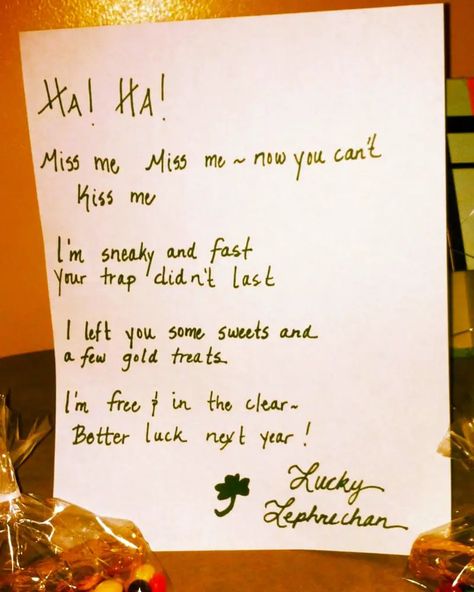 HA! HA!
Miss me Miss me ~ now you can't
Kiss me
I'm sneaky and fast
your trap didn't last
I left you some sweets and
a few gold treats.
I'm free & in the clear ~
Better luck next year!
Lucky
Lephrechan